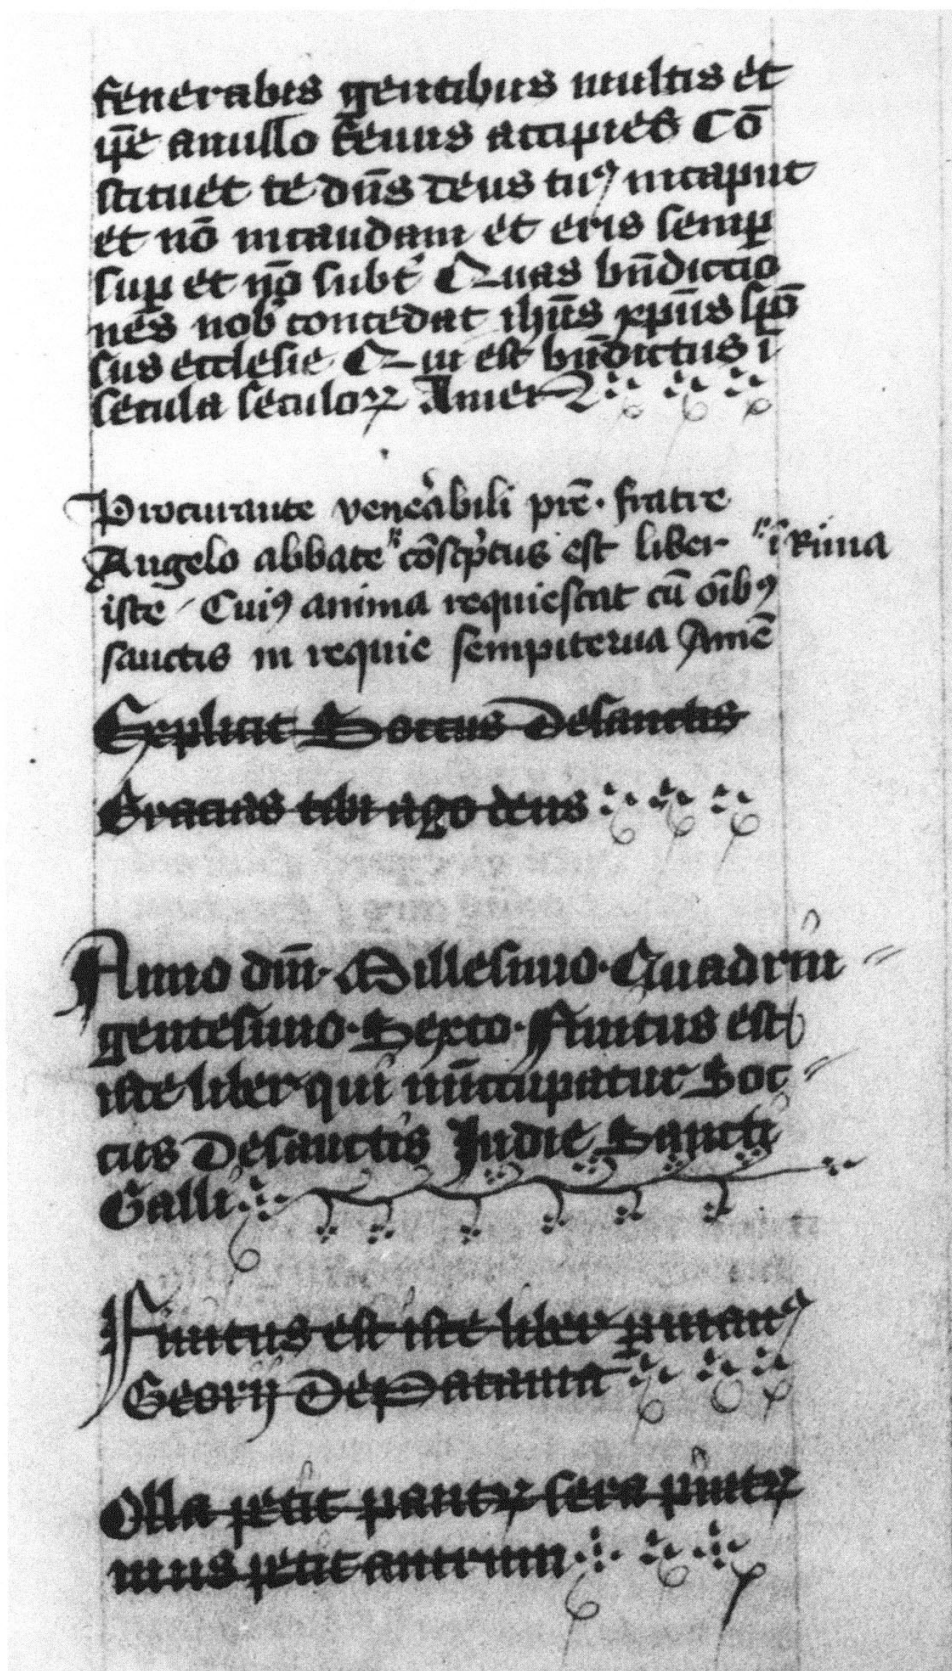 fenerabis gentibus multis et
ip̄e a nullo fenus accipies Cō
stituet te dn̄s deus tuꝰ in caput
et nō in caudam et eris semꝑ
suꝑ et nō subt͛ Quas bn̄dictio
nes nob͛ concedat ihūs xp̄us spō
sus ecclesie Qui est bn̄dictus ī
secula seculoꝝ Amen
Procurante ven͛abili pr̄e · fratre
Angelo abbate " cōsc͛ptus est liber " ī Rima
iste Cuiꝰ anima requiescat cū oībꝰ
sanctis in requie sempiterna Amē
Explicit Soccus De sanctis
Gracias tibi ago deus
Anno dn̄i · Millesimo · Quadrin⸗
gentesimo · Sexto · Finitus est
iste liber qui nūccupatur Soc⸗
cus De sanctis In die Sancti
Galli
Finitus est iste liber ꝑ manꝰ
Georij De Patauia
Olla petit pantꝝ sera pintꝝ
mus petit antrum